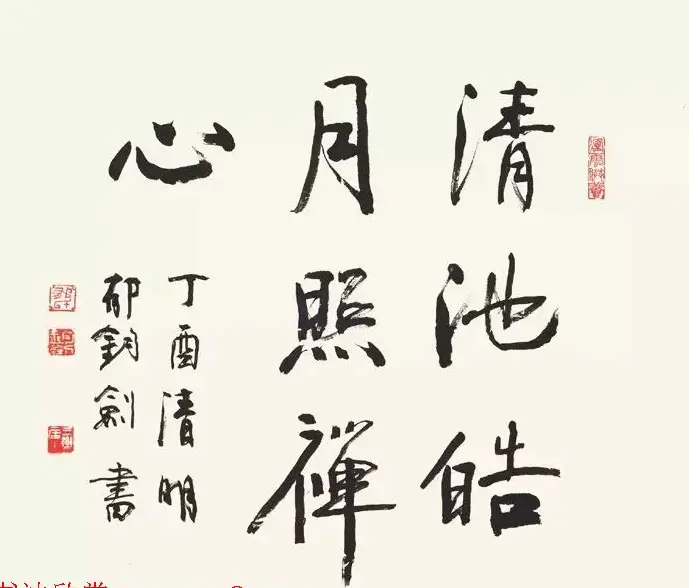 清池皓
月照禪
心
丁酉清明
郁鈞劍書